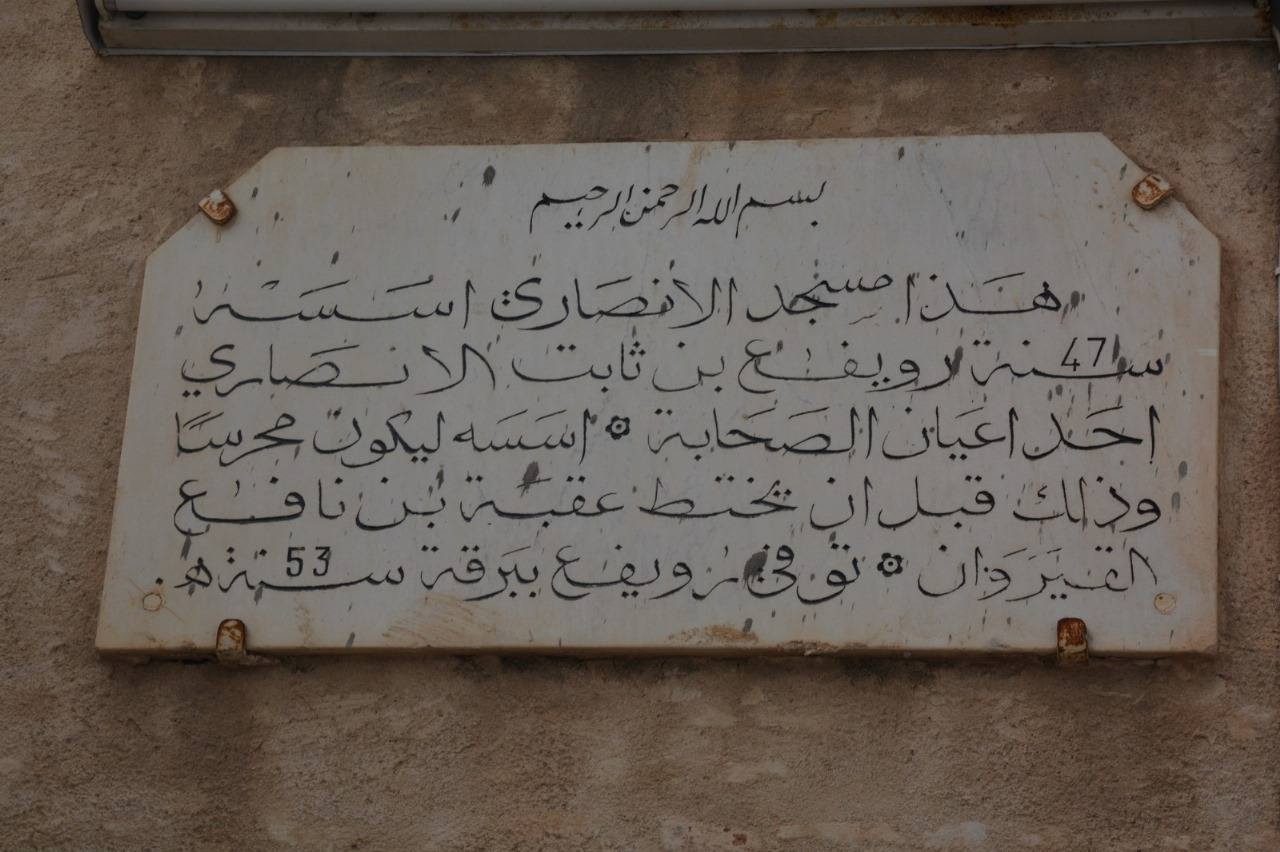 بسم الله الرحمن الرحيم
هَذا مسجد الانصاري اسسَه
سنة 47 رويفع بن ثابت الانصاري
احَد اعيَان الصَحَابة ۞ اسَسَه ليكون محرسًا
وذلك قبل ان يختط عقبَة بن نافع
القيرَوَان ۞ توفي رويفع ببَرقة سنة 53 ه.